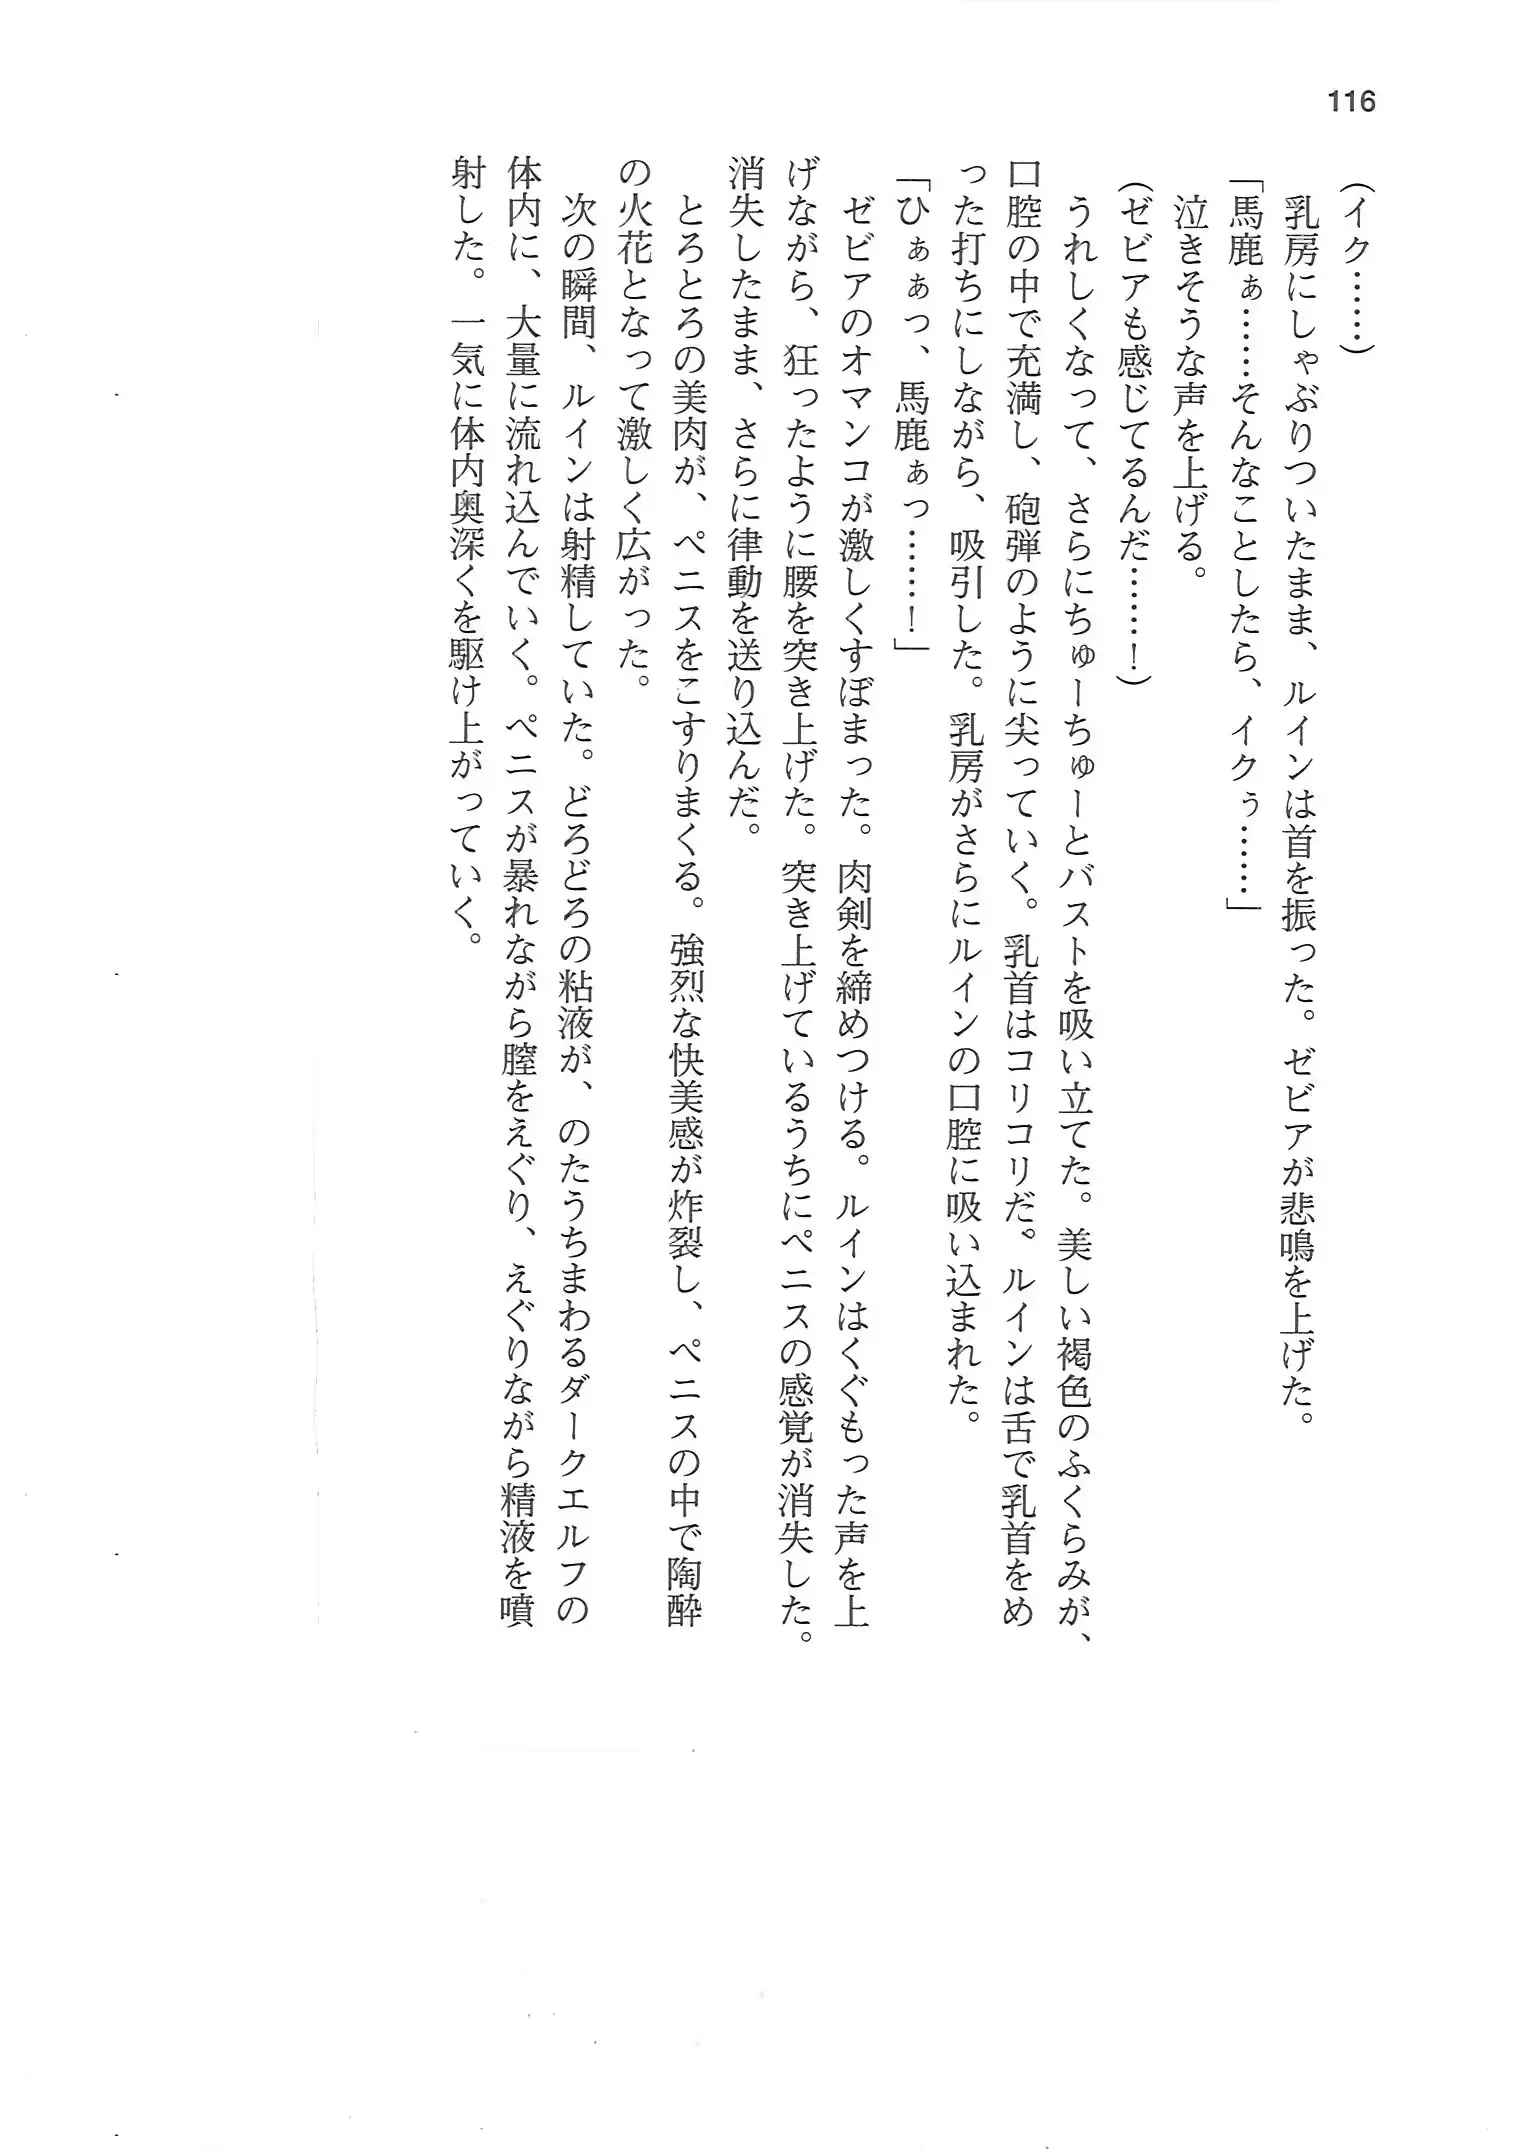 116
(イク……)
　乳房にしゃぶりついたまま、ルインは首を振った。ゼビアが悲鳴を上げた。
「馬鹿ぁ……そんなことしたら、イクぅ……」
　泣きそうな声を上げる。
(ゼビアも感じてるんだ……！)
　うれしくなって、さらにちゅーちゅーとバストを吸い立てた。美しい褐色のふくらみが、
口腔の中で充満し、砲弾のように尖っていく。乳首はコリコリだ。ルインは舌で乳首をめ
った打ちにしながら、吸引した。乳房がさらにルインの口腔に吸い込まれた。
「ひぁぁっ、馬鹿ぁっ……！」
　ゼビアのオマンコが激しくすぼまった。肉剣を締めつける。ルインはくぐもった声を上
げながら、狂ったように腰を突き上げた。突き上げているうちにペニスの感覚が消失した。
消失したまま、さらに律動を送り込んだ。
　とろとろの美肉が、ペニスをこすりまくる。強烈な快美感が炸裂し、ペニスの中で陶酔
の火花となって激しく広がった。
　次の瞬間、ルインは射精していた。どろどろの粘液が、のたうちまわるダークエルフの
体内に、大量に流れ込んでいく。ペニスが暴れながら膣をえぐり、えぐりながら精液を噴
射した。一気に体内奥深くを駆け上がっていく。